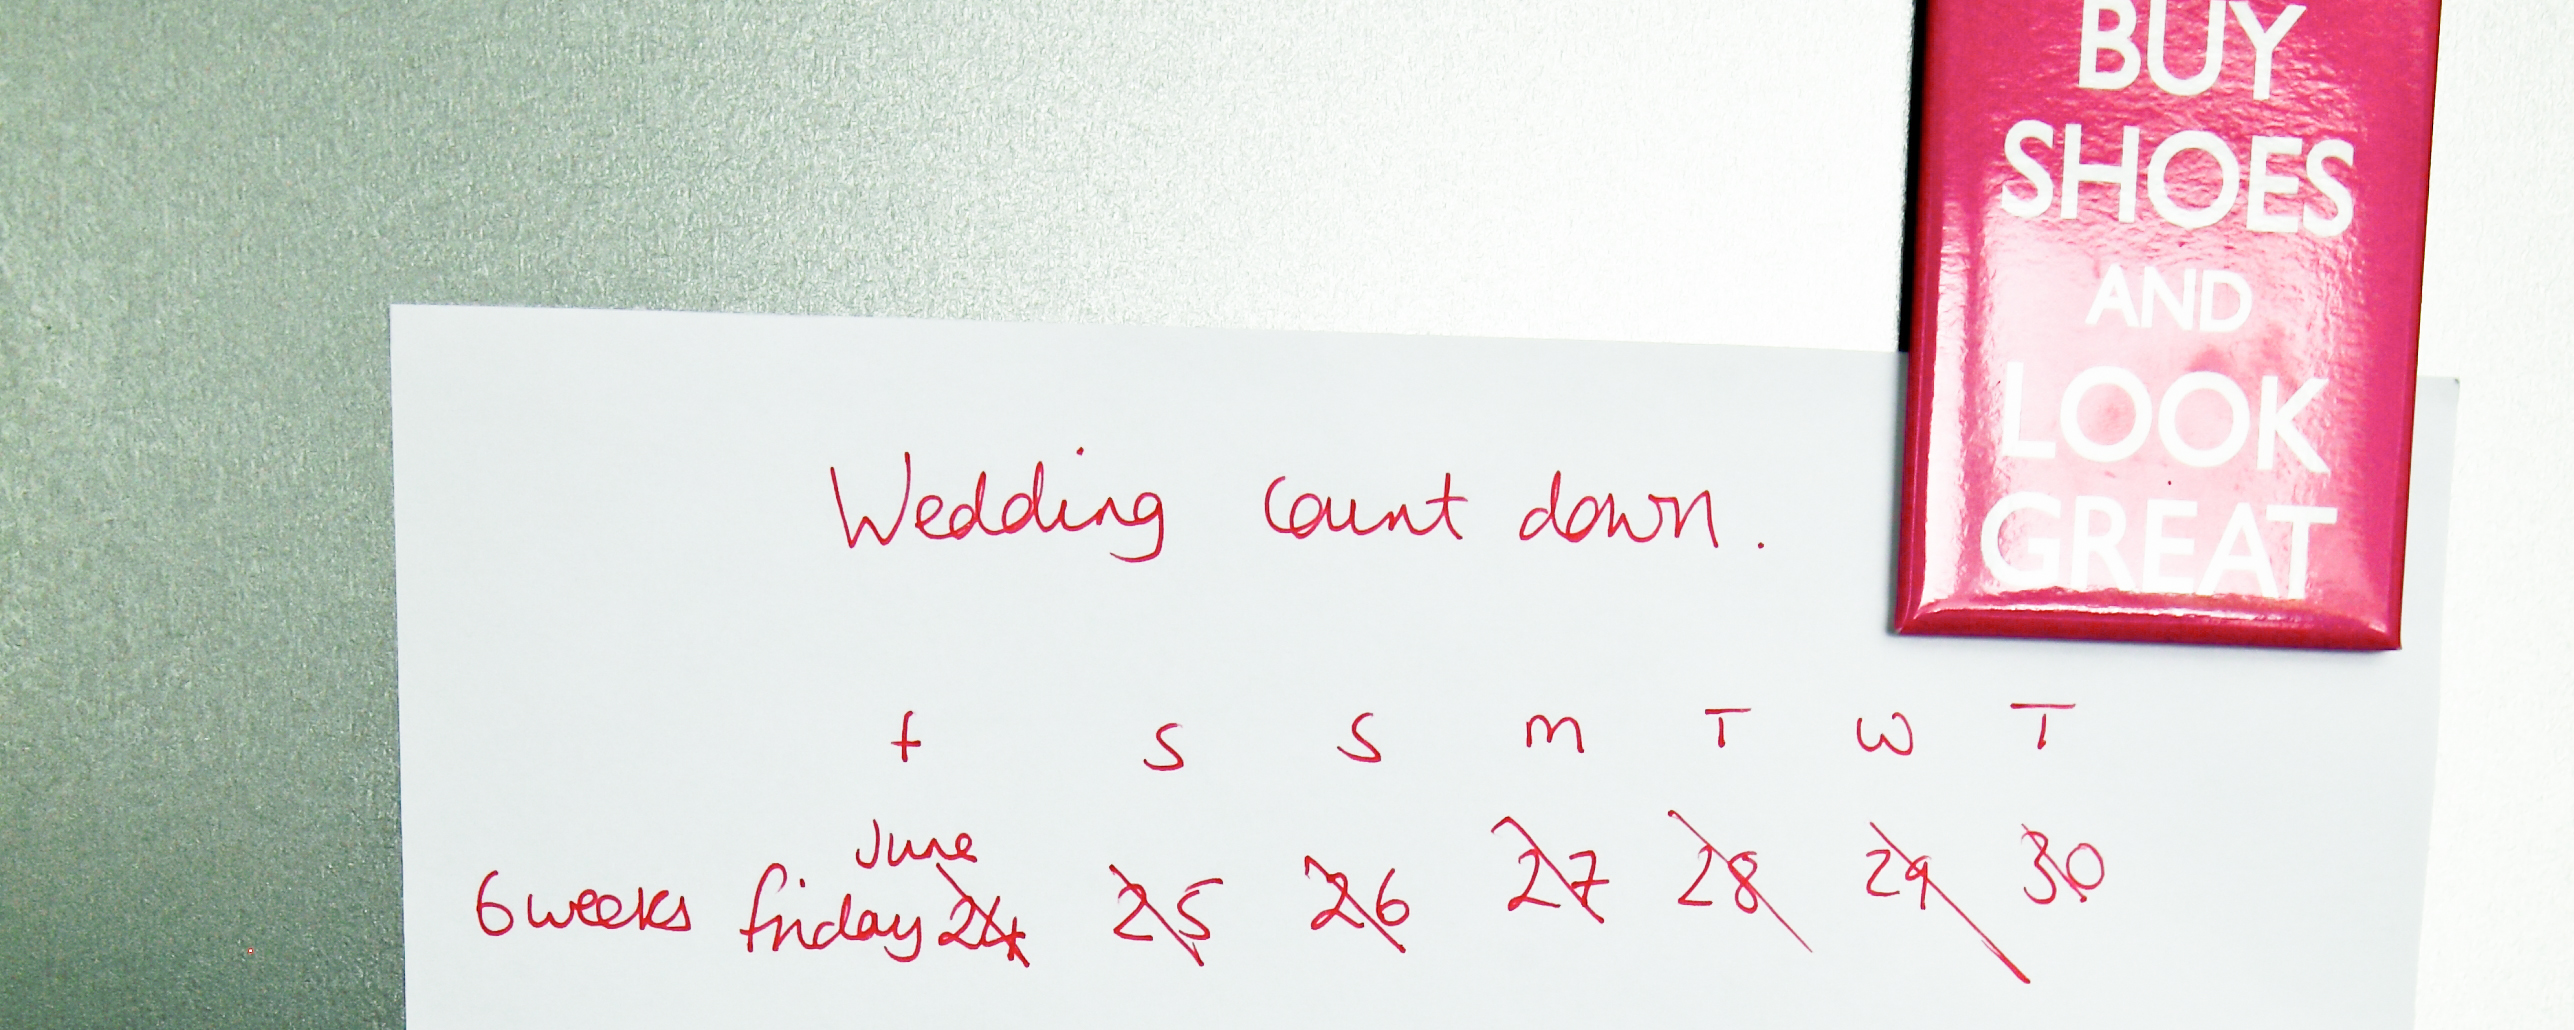 BUY
SHOES
AND
LOOK
GREAT
Wedding count down.
f S S M T W T
June
6 weeks friday 24 25 26 27 28 29 30